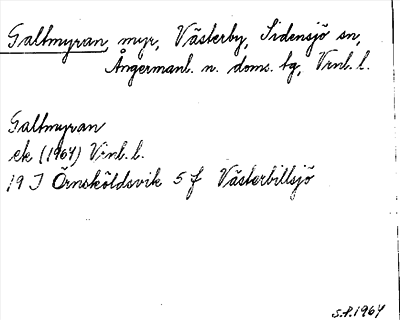 Galtmyran, myr, Västerby, Sidensjö sn,
Ångermanl. n. doms. tg, Vrnl. l.
Galtmyran
ek (1967) Vrnl. l.
19 J Örnsköldsvik 5 f Västerbillsjö
S.P. 1967